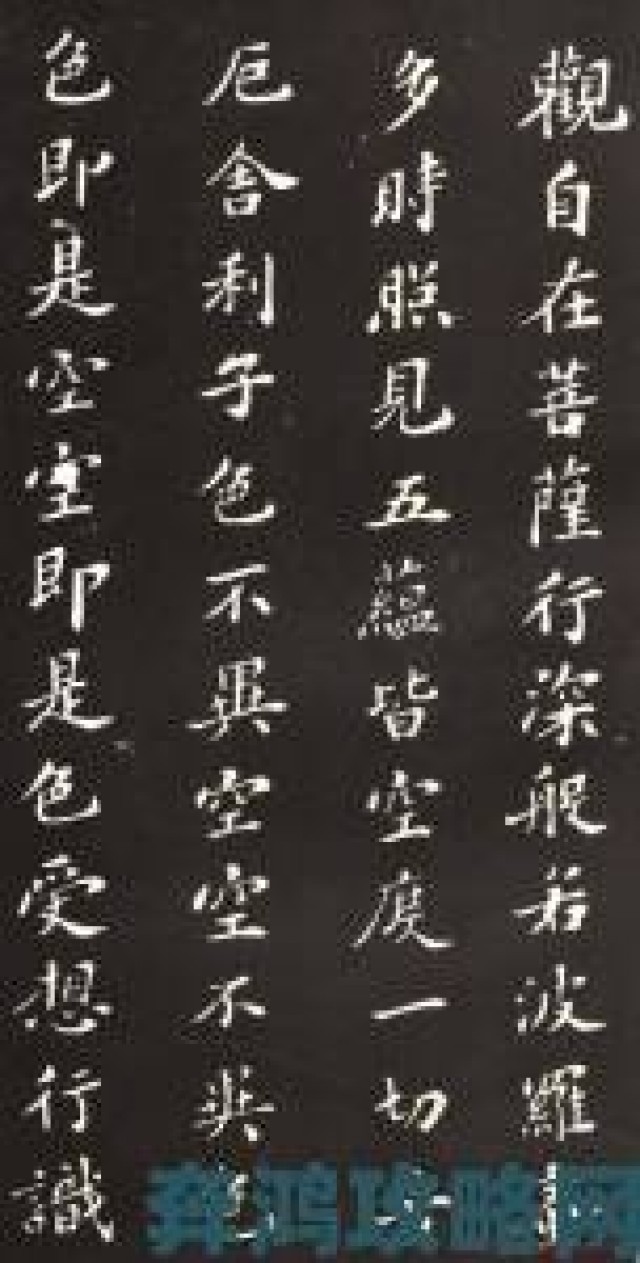 觀自在菩薩行深般若波羅
多時照見五蘊皆空度一切
厄舍利子色不異空空不異色
色即是空空即是色受想行識
奔鸿攻略网